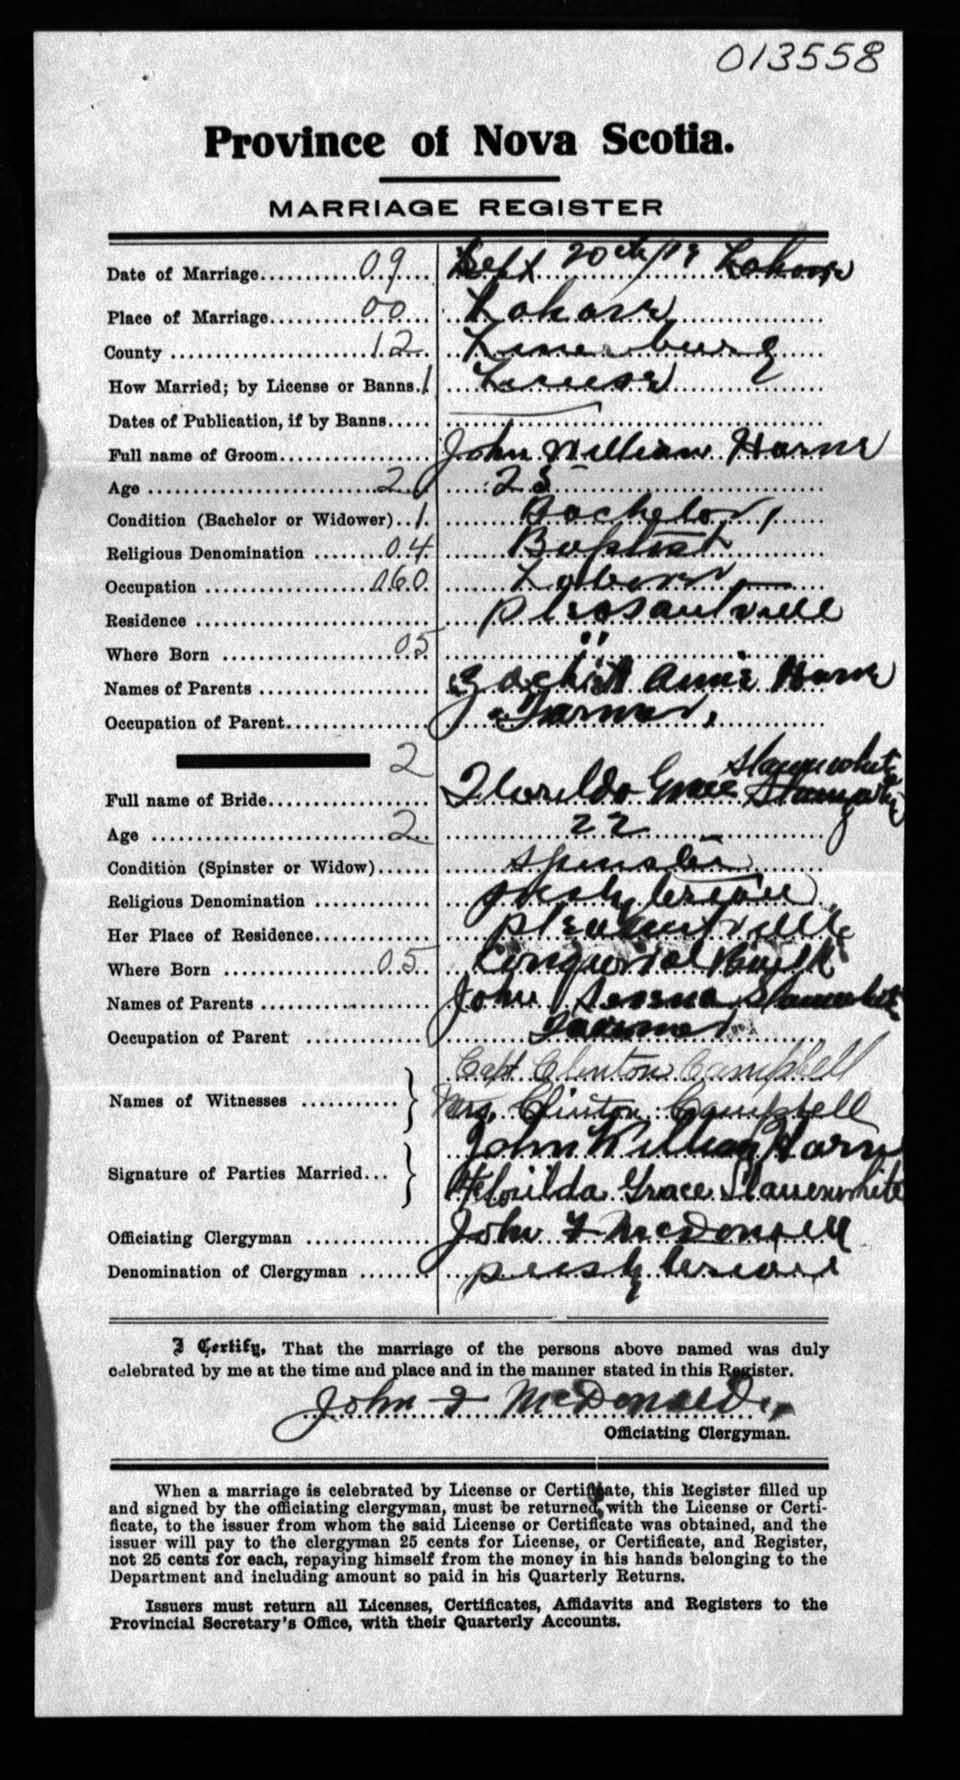 013558
Province of Nova Scotia.
MARRIAGE REGISTER
Date of Marriage 09 Sept 20th/19 Lahave
Place of Marriage 00 Lahave
County 12 Lunenburg
How Married; by License or Banns. 1 License
Dates of Publication, if by Banns
Full name of Groom John William Harne
Age 2 25
Condition (Bachelor or Widower) 1 Bachelor
Religious Denomination 04 Baptist
Occupation 060 Laborer
Residence Pleasantville
Where Born 05 "
Names of Parents Annie Harne
Occupation of Parent Farmer
2
Slauenwhite
Full name of Bride Florilda Grace
Age 2 22
Condition (Spinster or Widow) Spinster
Religious Denomination Presbyterian
Her Place of Residence Pleasantville
Where Born 05
Names of Parents John Serena Slauenwhite
Occupation of Parent Farmer
Capt Clinton Campbell
Names of Witnesses
Mrs. Clinton Campbell
John William Harn
Signature of Parties Married
Florilda Grace Slauenwhite
Officiating Clergyman John F McDonald
Denomination of Clergyman Presbyterian
I Certify, That the marriage of the persons above named was duly
celebrated by me at the time and place and in the manner stated in this Register.
John F McDonald
Officiating Clergyman.
When a marriage is celebrated by License or Certificate, this Register filled up
and signed by the officiating clergyman, must be returned, with the License or Certi-
ficate, to the issuer from whom the said License or Certificate was obtained, and the
issuer will pay to the clergyman 25 cents for License, or Certificate, and Register,
not 25 cents for each, repaying himself from the money in his hands belonging to the
Department and including amount so paid in his Quarterly Returns.
Issuers must return all Licenses, Certificates, Affidavits and Registers to the
Provincial Secretary's Office, with their Quarterly Accounts.